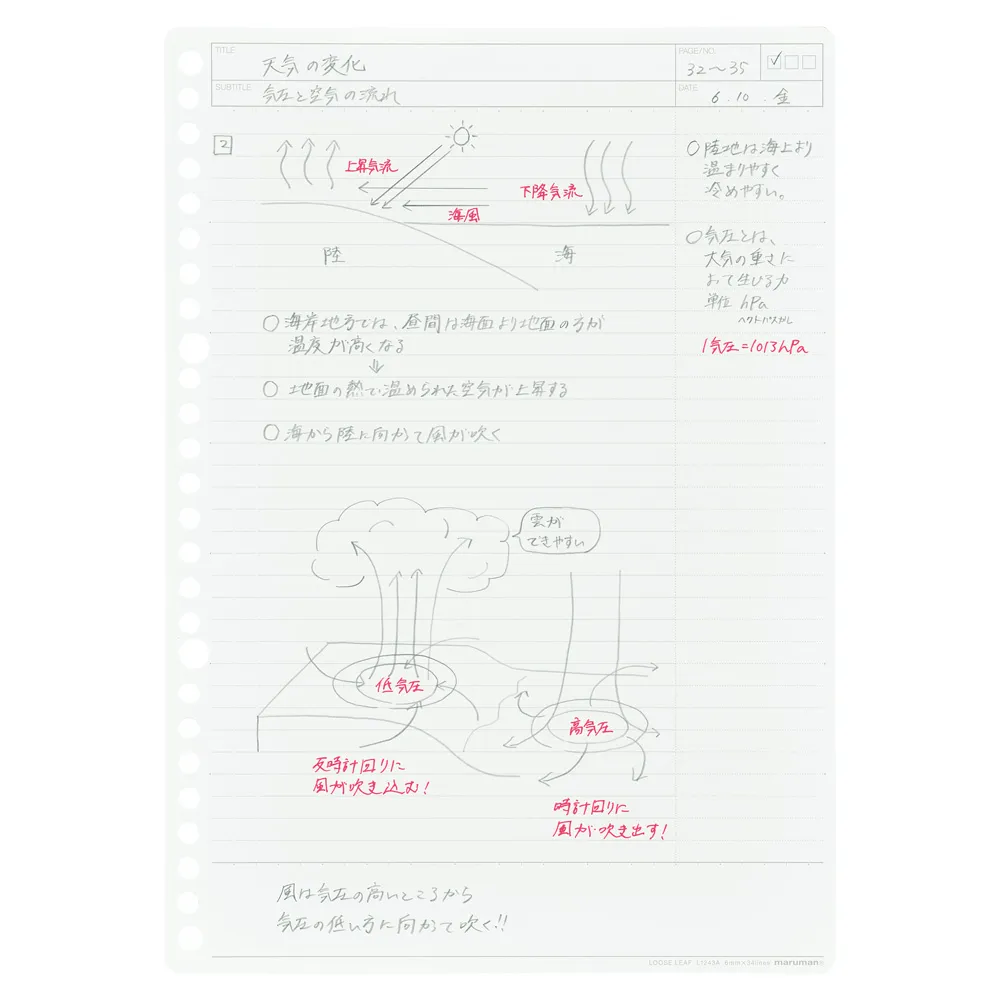 TITLE
天気の変化
PAGE/NO.
32〜35
SUBTITLE
気圧と空気の流れ
DATE
6.10.金
2
上昇気流
下降気流
海風
陸
海
○海岸地方では、昼間は海面より地面の方が
温度が高くなる
⇓
○地面の熱で温められた空気が上昇する
○海から陸に向かって風が吹く
○陸地は海上より
温まりやすく
冷めやすい。
○気圧とは、
大気の重さに
よって生じる力
単位 hPa
ヘクトパスカル
1気圧=1013hPa
雲が
できやすい
低気圧
高気圧
反時計回りに
風が吹き込む!
時計回りに
風が吹き出す!
風は気圧の高いところから
気圧の低い方に向かって吹く!!
LOOSE LEAF L1245A 6mm×34lines maruman